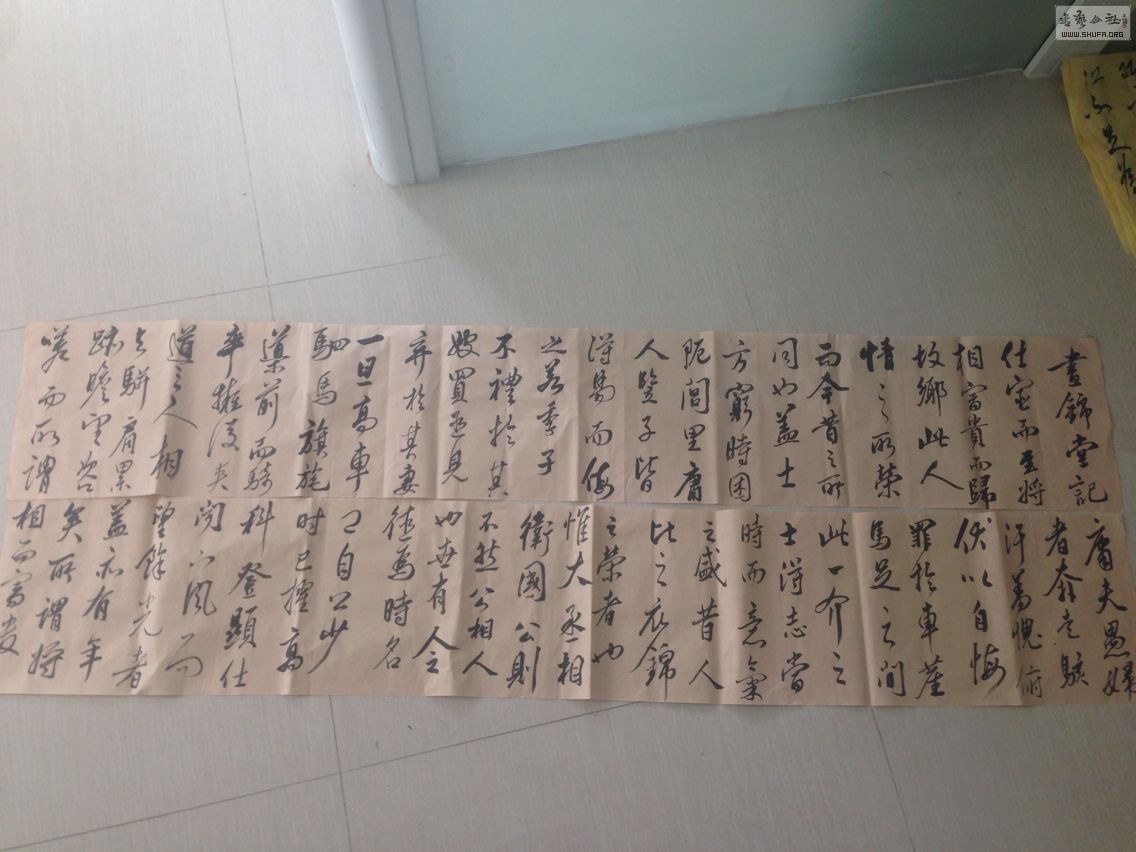 書藝公社
WWW.SHUFA.ORG
晝錦堂記
仕宦而至將
相富貴而歸
故鄉此人
情之所榮
而今昔之所
同也蓋士
方窮時困
阨閭里庸
人豎子皆
得易而侮
之若季子
不禮於其
嫂買臣見
棄於其妻
一旦高車
駟馬旗旄
導前而騎
卒擁後夾
道之人相
與駢肩累
跡瞻望咨
嗟而所謂
庸夫愚婦
者奔走駭
汗羞愧俯
伏以自悔
罪於車塵
馬足之間
此一介之
士得志當
時而意氣
之盛昔人
比之衣錦
之榮者也
惟大丞相
衛國公則
不然公相人
也世有令
德為時名
卿自公少
时已擢高
科登顯仕
聞下風而
望餘光者
蓋亦有年
矣所謂將
相而富貴